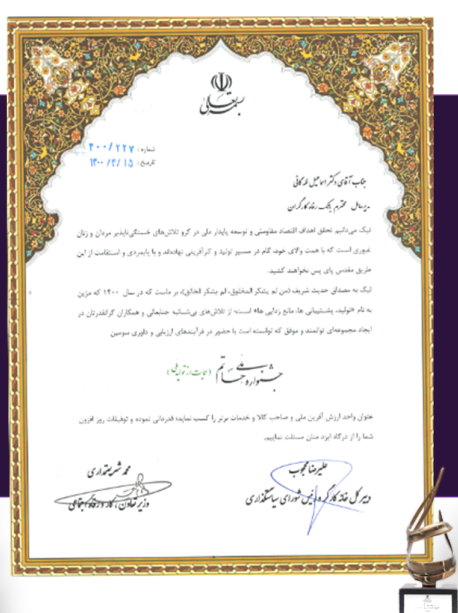 بسمه تعالی
شماره: ۴۰۰/۲۲۷
تاریخ: ۱۴۰۰/۴/۱۵
جناب آقای دکتر اسماعیل لله گانی
مدیرعامل محترم بانک رفاه کارگران
نیک می‌دانیم تحقق اهداف اقتصاد مقاومتی و توسعه پایدار ملی در گرو تلاش‌های خستگی‌ناپذیر مردان و زنان
غیوری است که با همت والای خود، گام در مسیر تولید و کارآفرینی نهاده‌اند و با پایمردی و استقامت از این
طریق مقدس پای پس نخواهند کشید.
لیک به مصداق حدیث شریف (من لم یشکر المخلوق، لم یشکر الخالق)، بر ماست که در سال ۱۴۰۰ که مزین
به نام «تولید، پشتیبانی ها، مانع زدایی ها» است؛ از تلاش‌های بی‌شائبه جنابعالی و همکاران گرانقدرتان در
ایجاد مجموعه‌ای توانمند و موفق که توانسته است با حضور در فرآیندهای ارزیابی و داوری سومین
جشنواره ملی حاتم (حمایت از تولید ملی)
عنوان واحد ارزش آفرین ملی و صاحب کالا و خدمات برتر را کسب نماید؛ قدردانی نموده و توفیقات روز افزون
شما را از درگاه ایزد منان مسئلت نماییم.
علیرضا محجوب
دبیر کل خانه کارگر و رئیس شورای سیاستگذاری
محمد شریعتمداری
وزیر تعاون، کار و رفاه اجتماعی